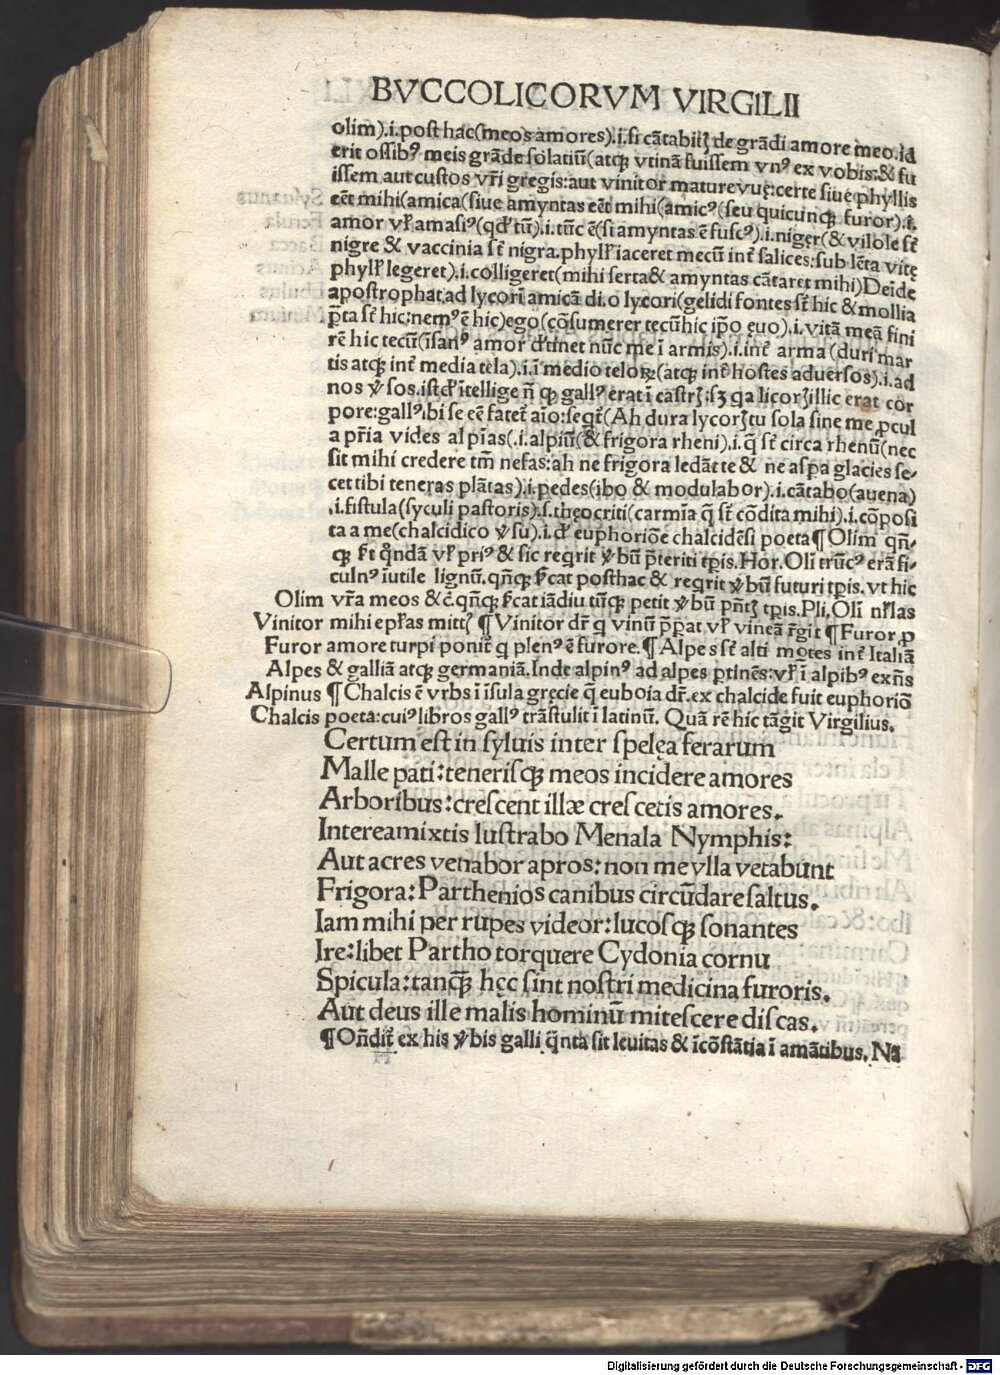 BVCCOLICORVM VIRGILII
olim).i.post hac(meos amores).i.si cātabitꝭ de grādi amore meo.id
erit ossibꝰ meis grāde solatiū(atqꝫ vtinā fuissem vnꝰ ex vobis:& fu
issem aut custos vr̄i gregis:aut vinitor mature vuę:certe siue phyllis
eēt mihi(amica(siue amyntas eēt mihi(amicꝰ(seu quicunqꝫ furor).i.
amor vł amasiꝰ(qđ tū).i.tūc ē(si amyntas ē fuscꝰ).i.niger(& violę st̄
nigre & vaccinia st̄ nigra.phylł iaceret mecū int̄ salices:sub lēta vite
phylł legeret).i.colligeret(mihi serta& amyntas cātaret mihi)Deīde
apostrophat ad lycorī amicā di.o lycori(gelidi fontes st̄ hic & mollia
p̄ta st̄ hic:nemꝰ ē hic)ego(cōsumerer tecū hic ip̄o ęuo).i.vitā meā fini
rē hic tecū(īsanꝰ amor đtinet nūc me ī armis).i.int̄ arma (duri mar
tis atqꝫ int̄ media tela).i.ī medio teloꝝ(atqꝫ int̄ hostes aduersos).i.ad
nos ꝟsos.ist đ ītellige n̄ qꝫ gallꝰ erat ī castrꝭ:sꝫ qa licorꝭ illic erat cor
pore:gallꝰ ibi se eē fatet̄ aīo:seqt̄(Ah dura lycorꝭ tu sola sine me ꝓcul
a pr̄ia vides alpīas(.i.alpiū(& frigora rheni).i.q̄ st̄ circa rhenū(nec
sit mihi credere tm̄ nefas:ah ne frigora ledāt te & ne aspa glacies se-
cet tibi teneras plātas).i.pedes(ibo & modulabor).i.cātabo(auena)
.i.fistula(syculi pastoris).s.theocriti(carmīa q̄ st̄ cōdita mihi).i.cōposi
ta a me(chalcidico ꝟsu).i.đ euphoriōe chalcidēsi poeta¶Olim qn̄-
qꝫ st̄ qn̄dā vł priꝰ & sic reqrit ꝟbū p̄teriti tp̄is.Hor.Olī trūcꝰ erā fi-
culnꝰ īutile lignū.qn̄qꝫ st̄cat posthac & reqrit ꝟbū futuri tp̄is.vt hic
Olim vr̄a meos &c̄.qn̄qꝫ st̄cat iādiu tūqꝫ petit ꝟbū pn̄tꝭ tp̄is.Pli.Olī nłlas
Vinitor mihi epłas mittꝭ ¶Vinitor dr̄ q vinū p̄pat vł vineā r̄git ¶Furor ꝓ
Furor amore turpi ponit̄ q plenꝰ ē furore.¶Alpes st̄ alti mōtes int̄ Italiā
Alpes & galliā atqꝫ germaniā.Inde alpinꝰ ad alpes ptinēs:vł ī alpibꝰ exn̄s
Alpinus ¶Chalcis ē vrbs ī īsula gręcie q̄ euboia dr̄.ex chalcide fuit euphoriō
Chalcis poeta:cuiꝰ libros gallꝰ trāstulit ī latinū. Quā rē hic tāgit Virgilius.
Certum est in syluis inter spelęa ferarum
Malle pati:tenerisqꝫ meos incidere amores
Arboribus:crescent illæ crescetis amores.
Interea mixtis lustrabo Menala Nymphis:
Aut acres venabor apros:non me vlla vetabunt
Frigora:Parthenios canibus circūdare saltus.
Iam mihi per rupes videor:lucosqꝫ sonantes
Ire:libet Partho torquere Cydonia cornu
Spicula:tanqꝫ hęc sint nostri medicina furoris.
Aut deus ille malis hominū mitescere discas.
¶On̄dit ex his ꝟbis galli q̄nta sit leuitas & īcōstātia ī amātibus. Nā
Digitalisierung gefördert durch die Deutsche Forschungsgemeinschaft - DFG